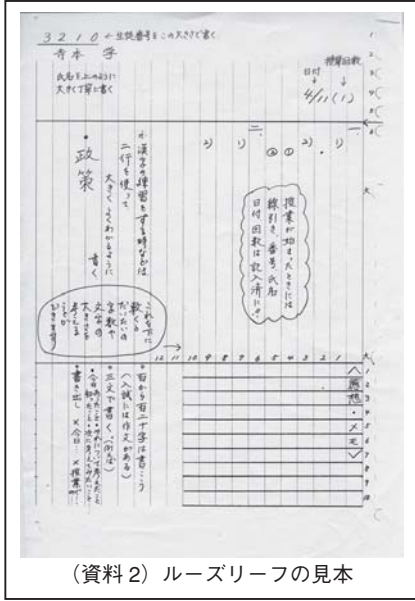 3210←生徒番号をこの大きさで書く
寺本 学
氏名を上のように
大きく丁寧に書く
授業回数
日付
4/11(1)
一、
1)
2)
①
②
二、
1)
2)
授業が始まったときには
線引き、番号、氏名
日付、回数は記入済に。
※漢字の練習をする時などは
二行を使って
大きくよくわかるように
書く
・政策
これを下に
敷くと
だいたいの
字数や
文字の
大きさを
考える
ことが
できます
12 11 10 9 8 7 6 5 4 3 2 1
〈感想・メモ〉
1
2
3
4
5
6
7
8
9
10
・百から百二十字は書こう
(入試には作文がある)
・三文で書く。(例えば)
・書き出し ×今日… ×授業が…
(資料2)ルーズリーフの見本